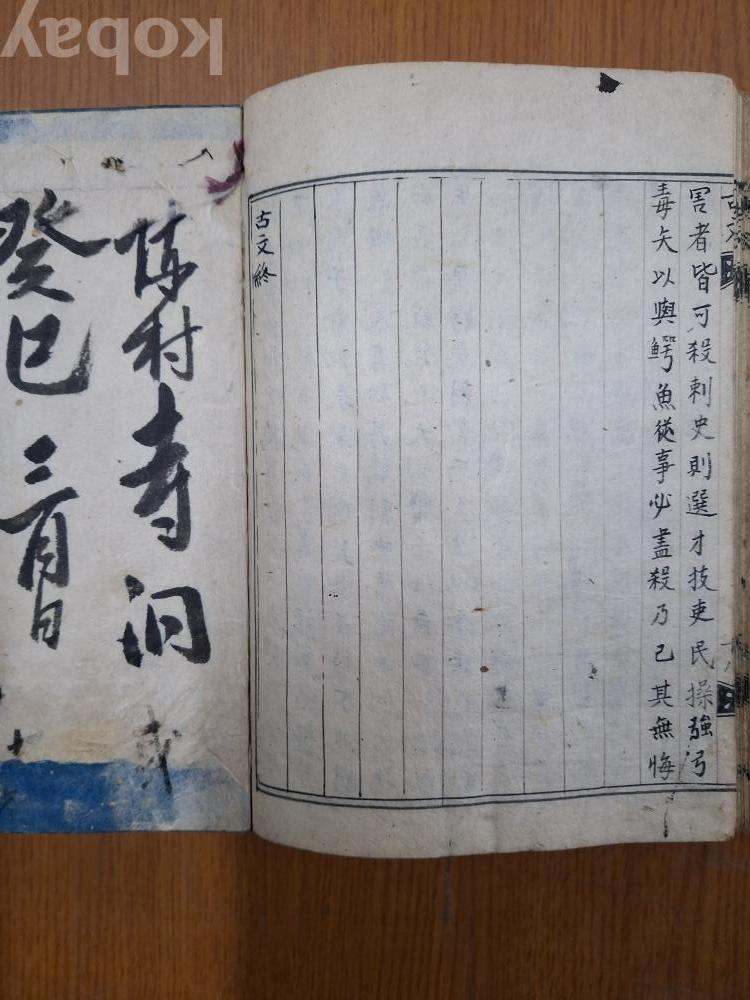 害者皆可殺刺史則選才技吏民操強弓
毒矢以與鰐魚從事必盡殺乃已其無悔
古文終
村寺洞
癸巳三月日
kobay